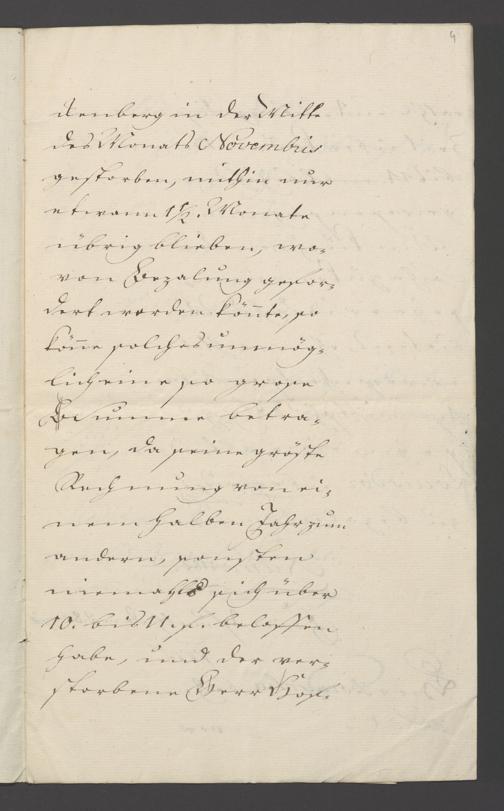 4
denberg in der Mitte
des Monats Novembris
gestorben, mithin nur
etwann 1½. Monate
übrig blieben, wo-
von Bezalung gefor-
dert worden könnte, so
könne solches unmög-
lich eine so grose
Summe betra-
gen, da seine gröste
Rechnung von ei-
nem halben Jahr zum
andern, sonsten
niemahls sich über
10. bis 11. f. beloffen
habe, und der ver-
storbene Herr Hof-